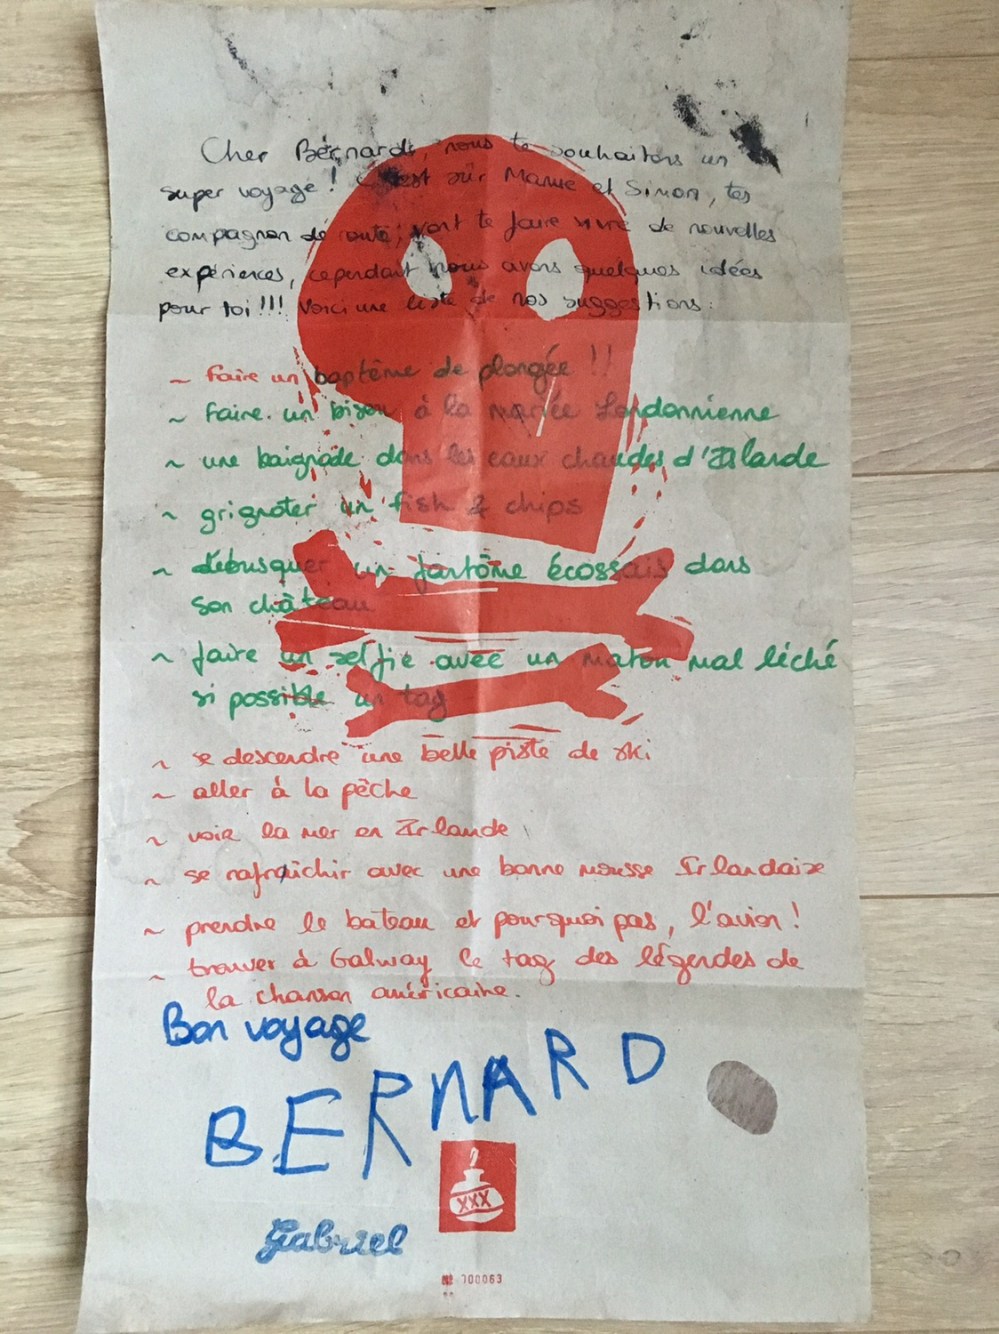 Cher Bernard, nous te souhaitons un
super voyage ! C'est sûr Marine et Simon, tes
compagnon de route, vont te faire vivre de nouvelles
expériences, cependant nous avons quelques idées
pour toi !!! Voici une liste de nos suggestions :
~ faire un baptême de plongée !!
~ faire un bisou à la mariée Londonnienne
~ une baignade dans les eaux chaudes d'Islande
~ grignoter un fish & chips
~ débusquer un fantôme écossais dans
son château
~ faire un selfie avec un maton mal léché
si possible un tag
~ se descendre une belle piste de ski
~ aller à la pêche
~ voir la mer en Irlande
~ se rafraîchir avec une bonne mousse Irlandaise
~ prendre le bateau et pourquoi pas, l'avion !
~ trouver à Galway le tag des légendes de
la chanson américaine.
Bon voyage
BERNARD
XXX
Gabriel